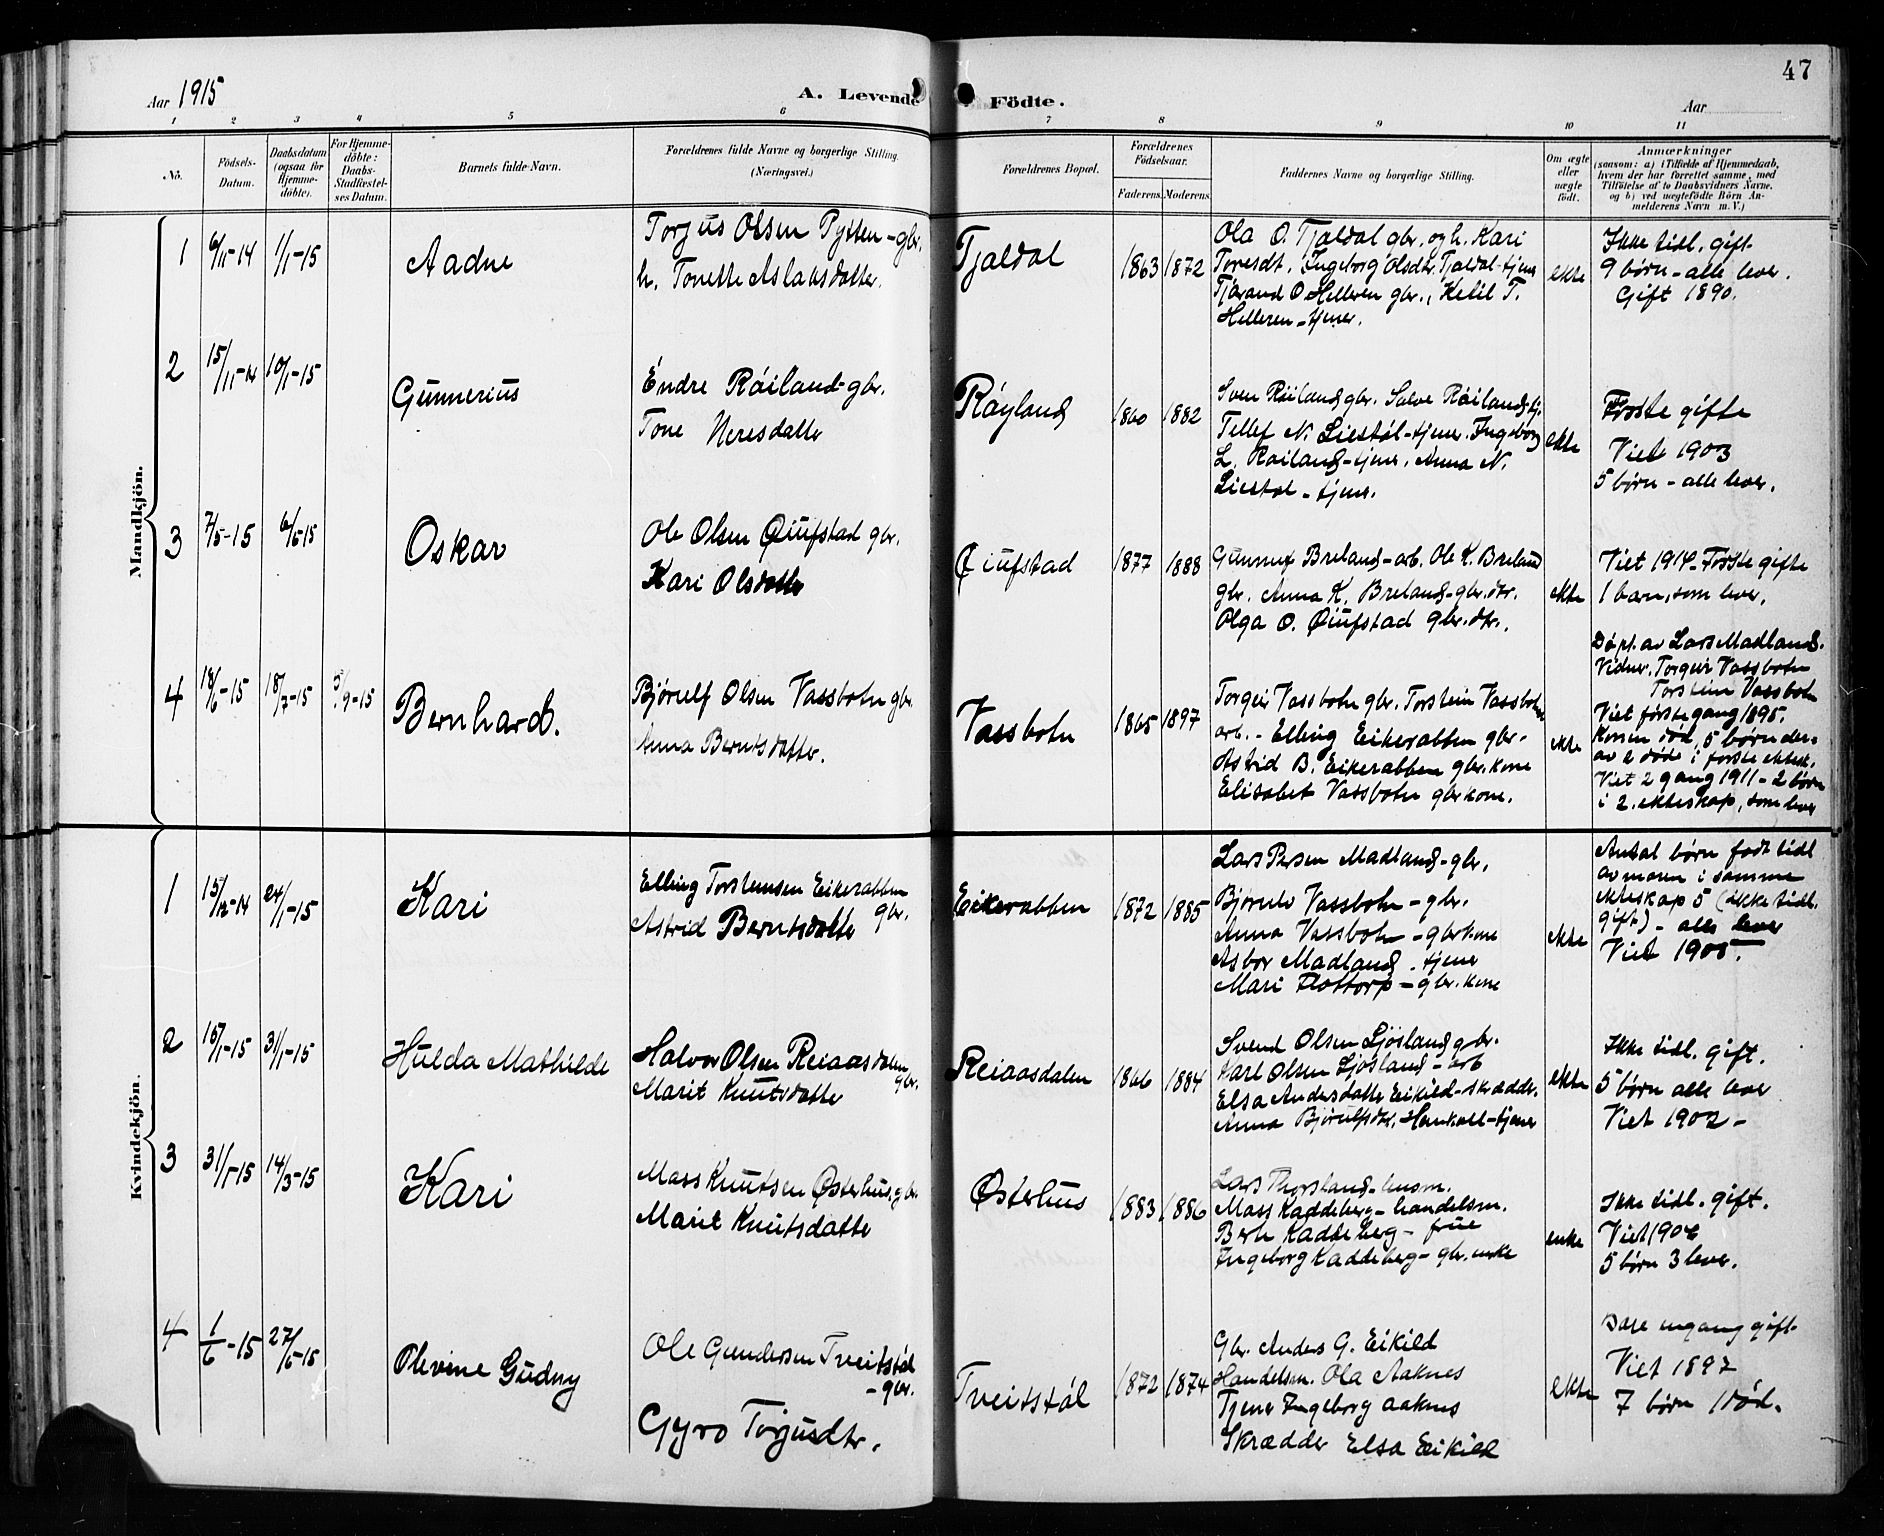 Aar 1915
A. Levende Födte.
47
Aar
1 2 3 4 5 6 7 8 9 10 11
No.
Födsels-Datum.
Daabsdatum (ogsaa for Hjemmedöbte).
For Hjemmedöbte: Daabs-Stadfæstelses Datum.
Barnets fulde Navn.
Forældrenes fulde Navne og borgerlige Stilling. (Næringsvei.)
Forældrenes Bopæl.
Forældrenes Födselsaar.
Faderens. Moderens.
Faddernes Navne og borgerlige Stilling.
Om ægte eller uægte födt.
Anmærkninger
(saasom: a) i Tilfælde af Hjemmedaab, hvem der har forrettet samme, med Tilföielse af to Daabsvidners Navne, og b) ved uægtefödte Börn Anmelderens Navn m. V.)
Mandkjön.
1 6/11-14 1/1-15 Aadne
Torjus Olsen Pytten - gbr.
h. Tonette Aslaksdatter.
Tjaldal 1863 1872
Ola O. Tjaldal gbr. og h. Kari
Toresdt. Ingeborg Olsdtr. Tjaldal-tjener
Tjøraand O Helleren gbr., Ketil T.
Helleren - tjener.
ekte
Ikke tidl. gift
9 børn - alle lever.
Gift 1890.
2 15/11-14 10/1-15 Gunnerius
Endre Røiland gbr.
Tone Neresdatter
Røyland 1860 1882
Sven Røiland gbr. Salve Røiland tj.
Tellef N. Liestøl - tjener. Ingeborg
L. Røiland - tjener, Anna N.
Liestøl - tjener.
ekte
Første gifte
Viet 1903
5 børn - alle lever.
3 7/5-15 6/6-15 Oskar
Ole Olsen Øiufstad gbr.
Kari Olsdatter
Øiufstad 1877 1888
Gunner Breland - arb. Ole K. Breland
gbr. Anna K. Breland - gbr. dtr.
Olga O. Øiufstad gbr. dtr.
ekte
Viet 1914 - Første gifte
1 barn, som lever.
4 18/6-15 18/7-15 5/9-15 Bernhard.
Bjørulf Olsen Vassbotn gbr.
Anna Berntsdatter.
Vassbotn 1865 1897
Torgeir Vassbotn gbr. Torstein Vassbotn
arb. - Elling Eikerabben gbr.
Astrid B. Eikerabben gbr. kone
Elisabet Vassbotn gbr kone.
ekte
Døpt av Lars Madland.
Vidner. Torgeir Vassbotn
Torstein Vassbotn
Viet første gang 1895.
Konen død, 5 børn der-
av 2 døde i første ektesk.
Viet 2 gang 1911 - 2 børn
i 2. ekteskap, som lever
Kvindekjön.
1 15/12-14 24/1-15 Kari
Elling Torsteinsen Eikerabben
gbr.
Astrid Berntsdatter
Eikerabben 1872 1885
Lars Persen Madland - gbr.
Bjørulv Vassbotn - gbr.
Anna Vassbotn - gbr kone
Asbor Madland - tjener
Mari Flottorp - gbr. kone
ekte
Antal børn født tidl
av moren i samme
ekteskap 5 (ikke tidl.
gift) - alle lever
Viet 1905.
2 15/1-15 31/1-15 Hulda Mathilde
Halvor Olsen Reiaasdalen
gbr.
Marit Knutsdatter
Reiaasdalen 1866 1884
Svend Olsen Ljosland gbr.
Karl Olsen Ljosland - arb
Elsa Andersdatter Eikild - skrædder.
Anna Bjørulfsdtr. Homkall - tjener
ekte
Ikke tidl. gift.
5 børn alle lever
Viet 1902 -
3 31/1-15 14/3-15 Kari
Mass Knutsen Østerhus, gbr.
Marit Knutsdatter
Østerhus 1883 1886
Lars Thorsland - husm.
Mass Kaddeberg - handelsm.
Berte Kaddeberg - frue
Ingeborg Kaddeberg - gbr. enke
enke
Ikke tidl. gift.
Viet 1904
5 børn 3 lever.
4 1/6-15 27/6-15 Olevine Gudny
Ole Gundersen Tveitstøl
- gbr.
Gyro Torjusdtr.
Tveitstøl 1872 1874
Gbr. Anders G. Eikild
Handelsm. Ola Aaknes
Tjener Ingeborg Aaknes
Skrædder Elsa Eikild
ekte
Bare engang gift
Viet 1897
7 børn 1 død.